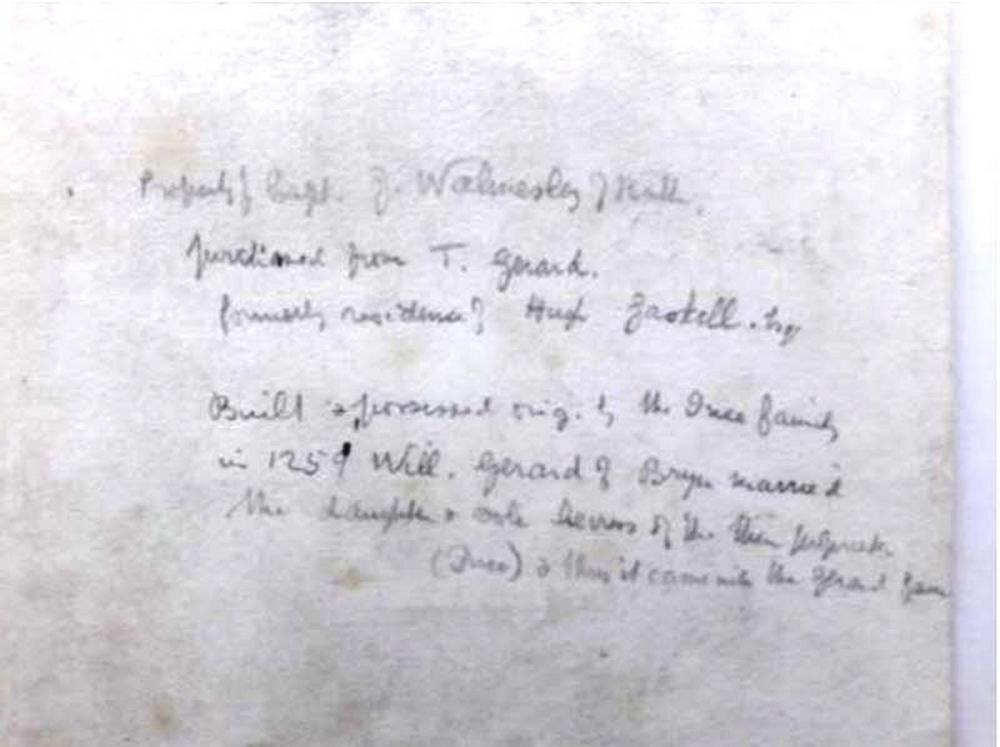 Property of Capt. J. Walmesley of Hall.
purchased from T. Gerard.
formerly residence of Hugh Gaskell. Esq
Built & possessed orig. by the Ince family
in 1259 Will. Gerard of Bryn married
the daughter & sole heiress of the then proprietor
(Ince) & thus it came into the Gerard fam